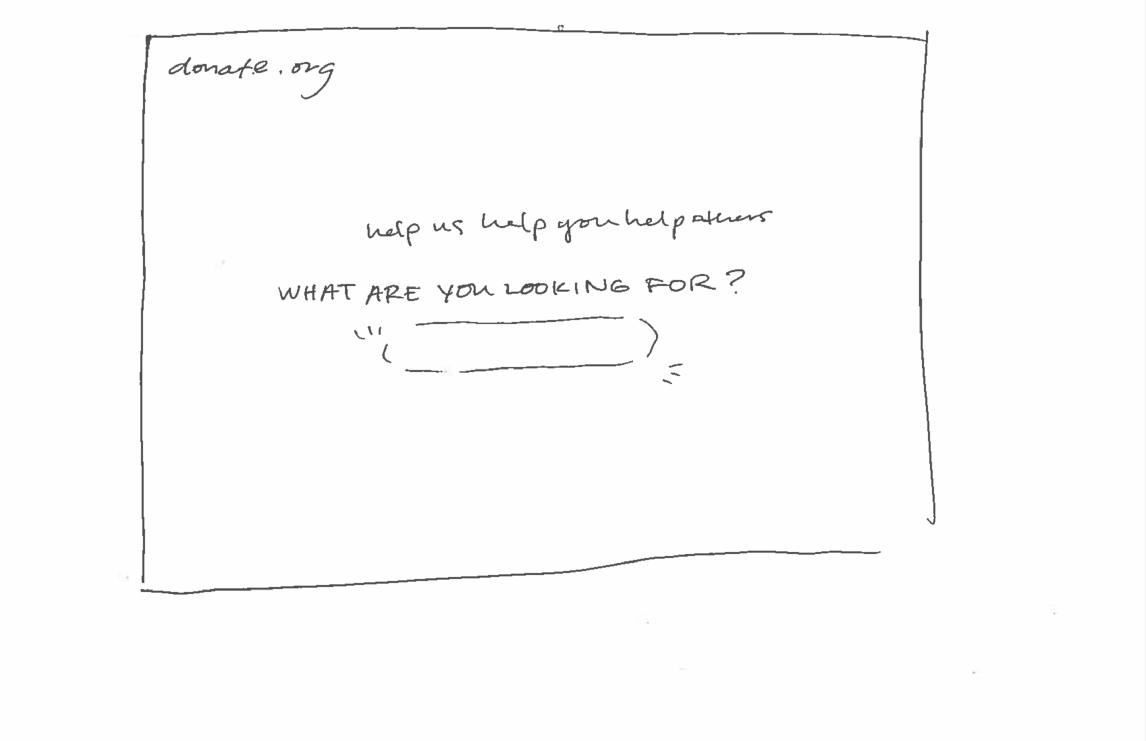 donate.org
help us help you help others
WHAT ARE YOU LOOKING FOR?